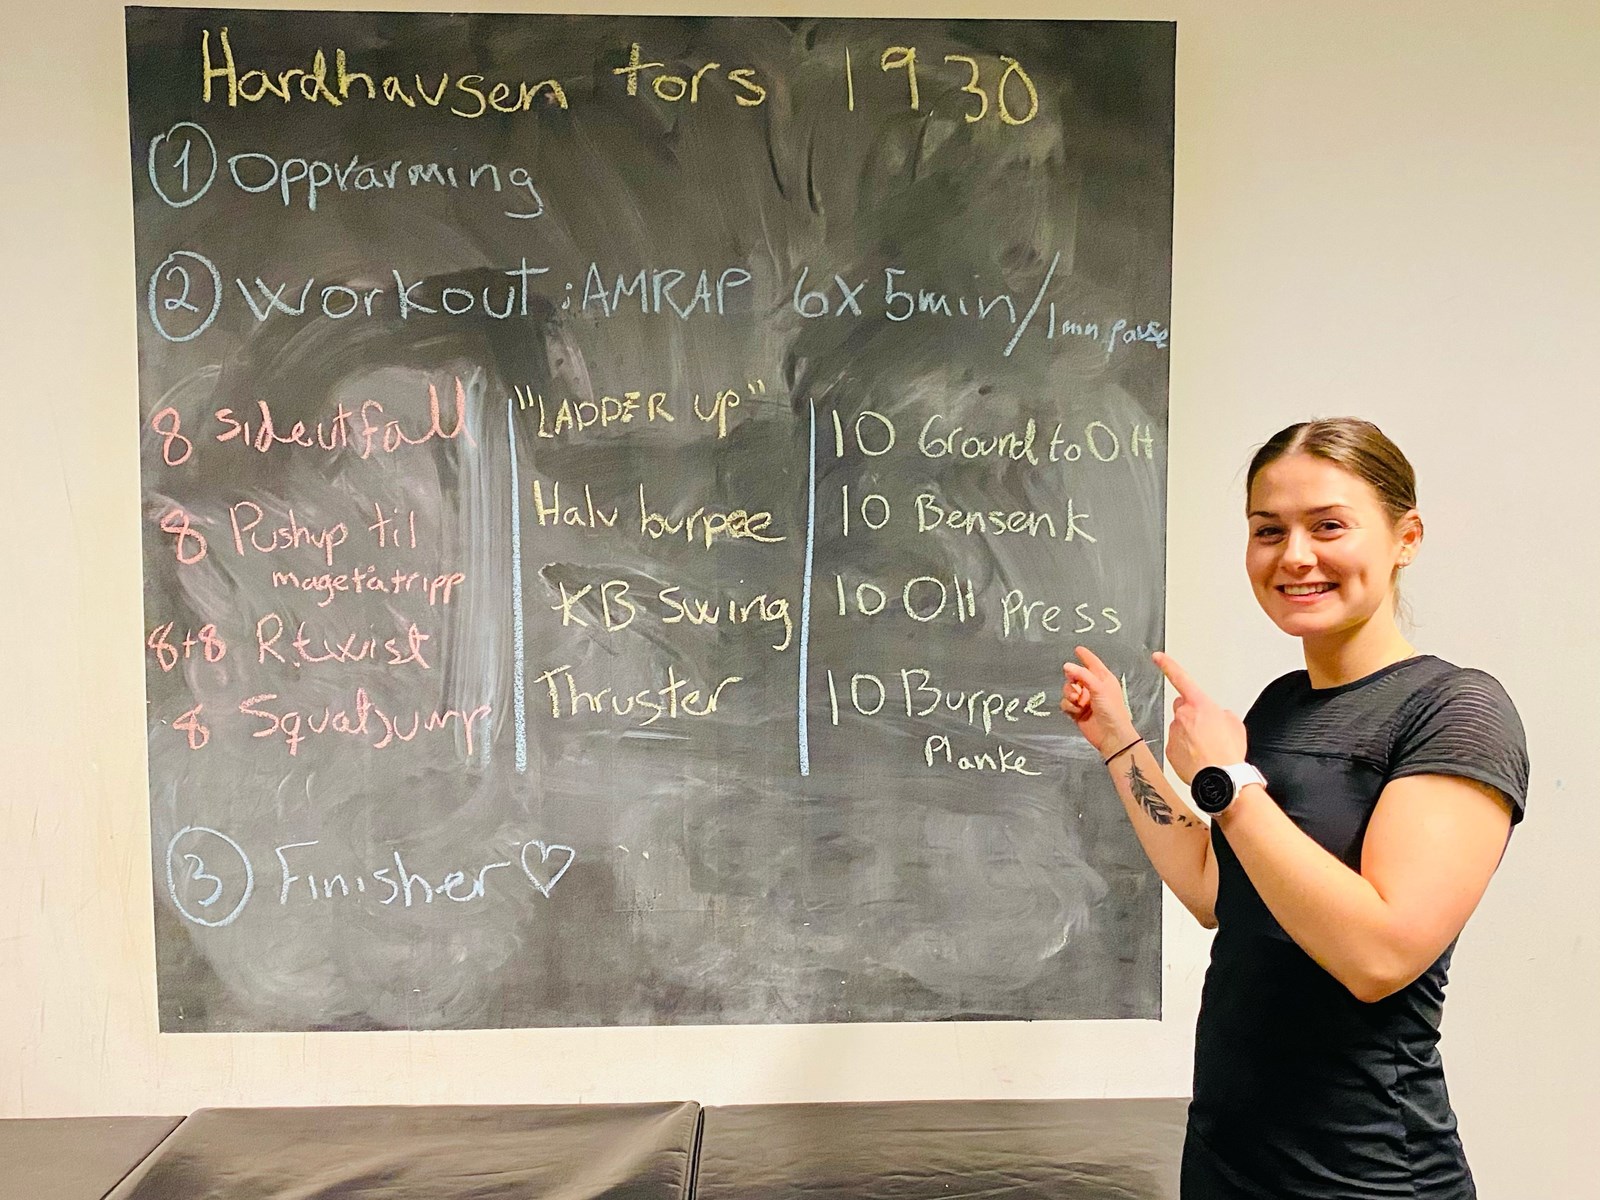 Hardhausen tors 19.30
1 Oppvarming
2 Workout : AMRAP 6x5min/1min pause
8 sideutfall
8 Pushup til
magetåtripp
8+8 R.twist
8 Squatjump
"LADDER UP"
Halv burpee
KB Swing
Thruster
10 Ground to OH
10 Bensenk
10 OH press
10 Burpee
Planke
3 Finisher ♡